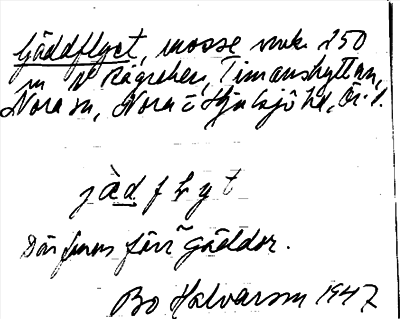 Gäddflyet, mosse
250
m N Rågrehen, Timanshyttan,
Nora sn, Nora o Hjulsjö hd, Ör. l.
jàd flyt
Där finns förr gäddor.
Bo Halvarson 1947